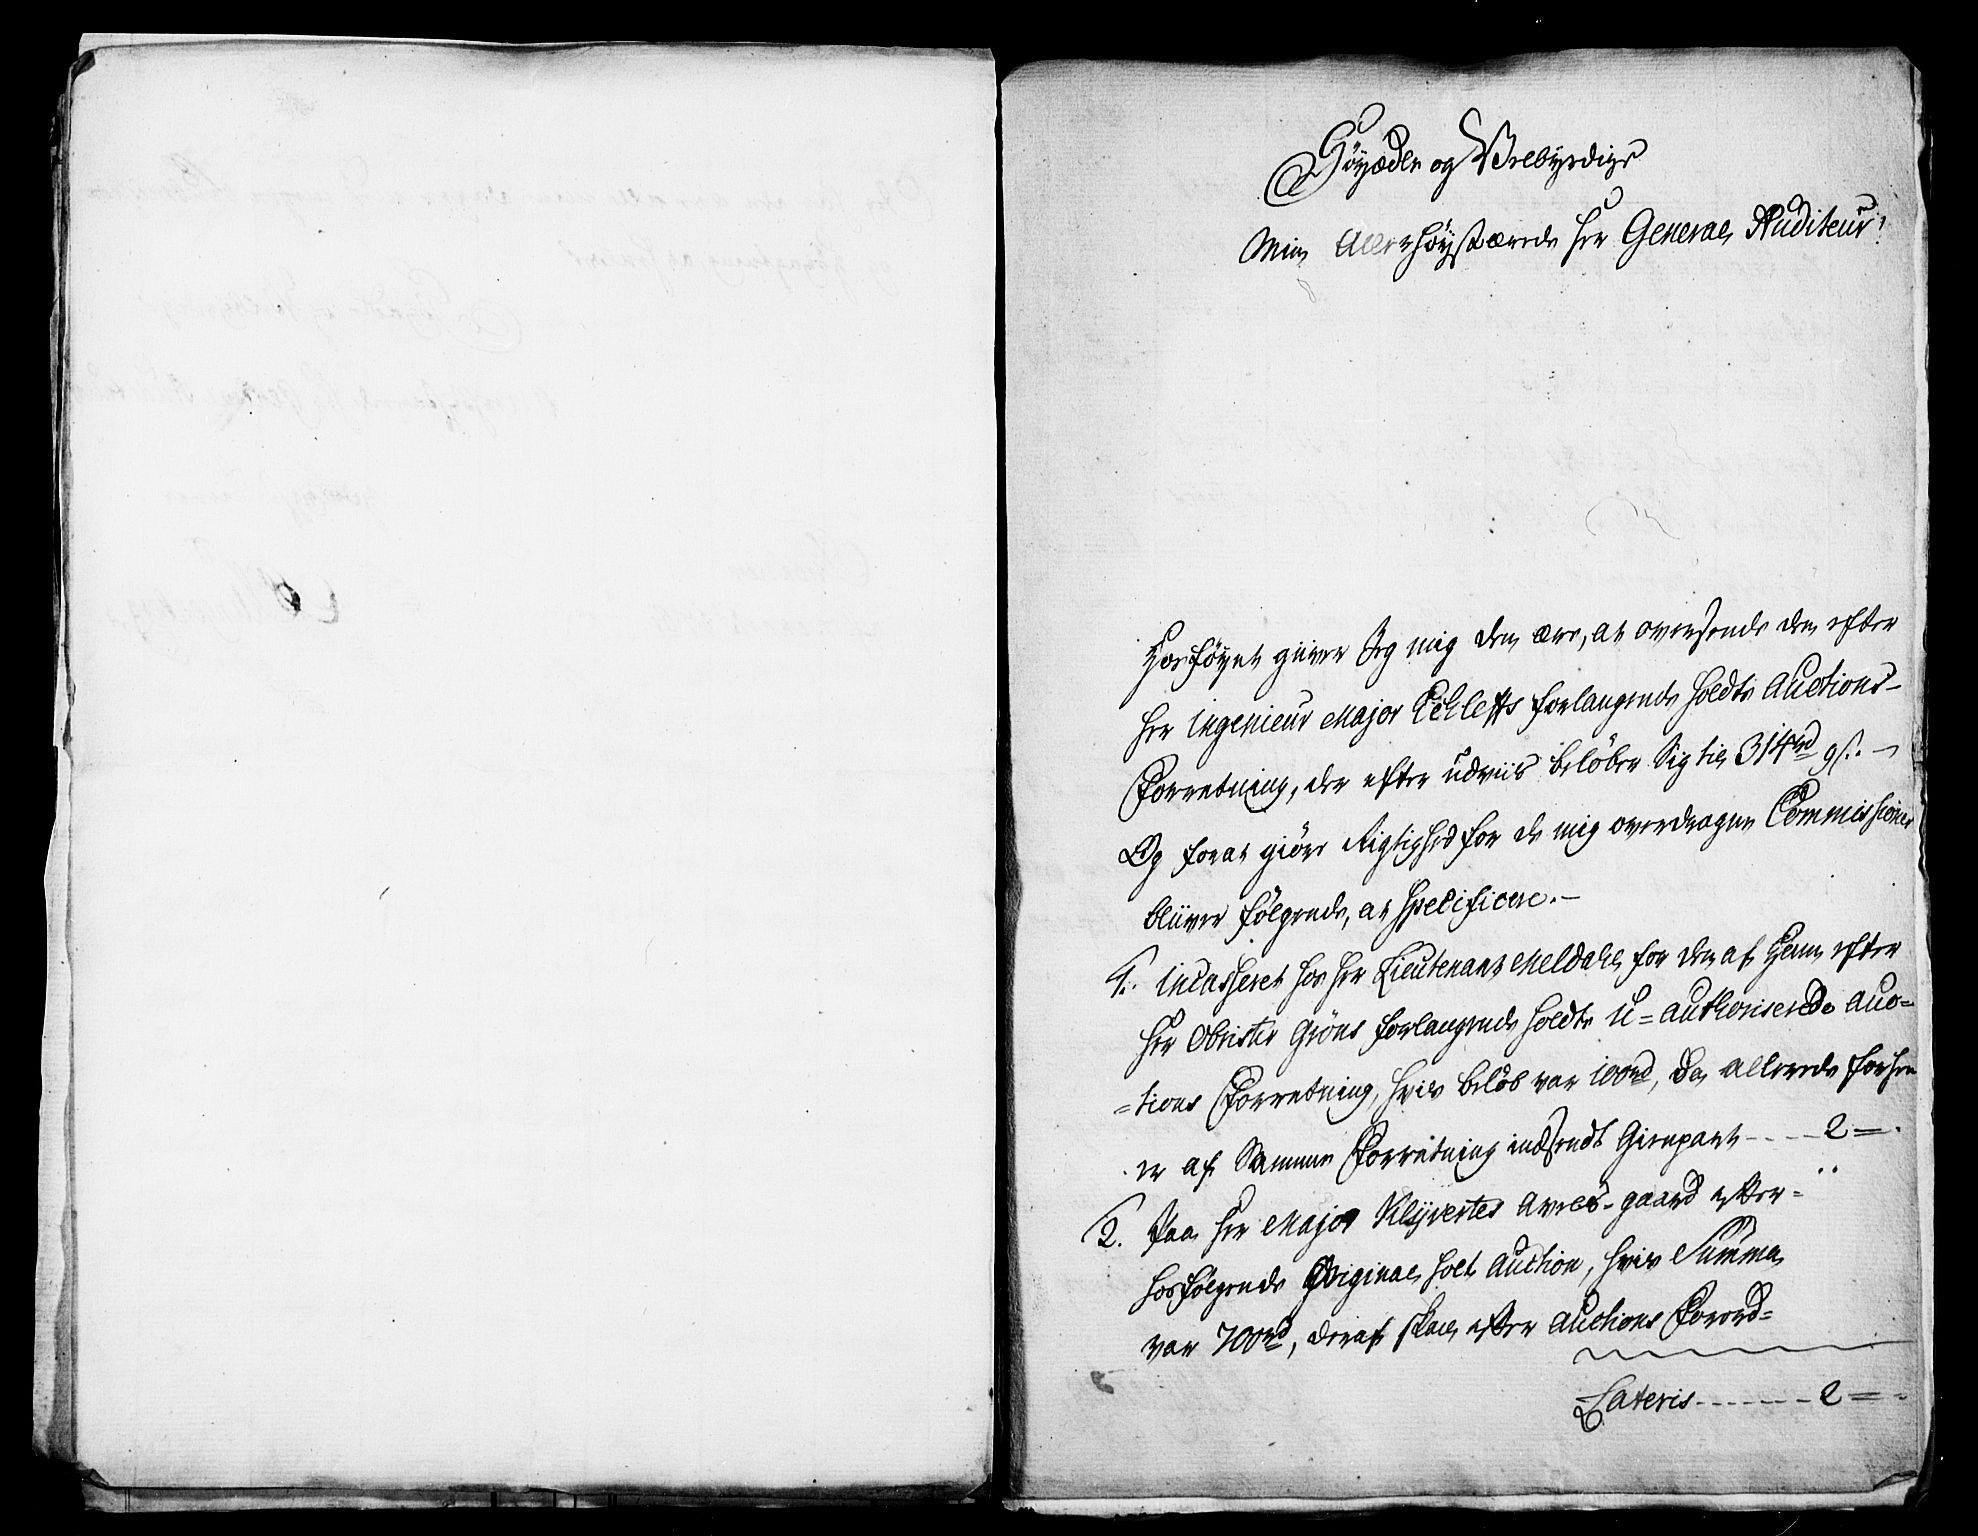 Höyædle og Velbyrdige
Min Allerhöystærede Hr General Auditeur!
Hosföyet giver Jeg mig den ære, at oversende den efter
Hr Ingenieur Major forlangende holdte Auctions-
Forretning, der efter udviis belöber Sig til 314rd 9s. -
Og for at giöre Rigtighed for de mig overdragne Commissioner
bliver fölgende, at specificere. -
1. Incasseret hos Hr Lieutenant Meldahl, for den af Ham efter
Hr Obrister Gröns forlangende holdte U=authoriserede Auc=
=tions Forretning, hvis belöb var 100rd, da allerede forhen
er af Samme Forretning indsendt Gienpart - - - - 2 = -
2. Paa Hr Major Klyvertes Avels-gaard efter=
hosfölgende Original holt Auction, hvis Summa
var 700rd, deraf skal efter Auctions Forord=
Lateris - - - - - - - 2 = -